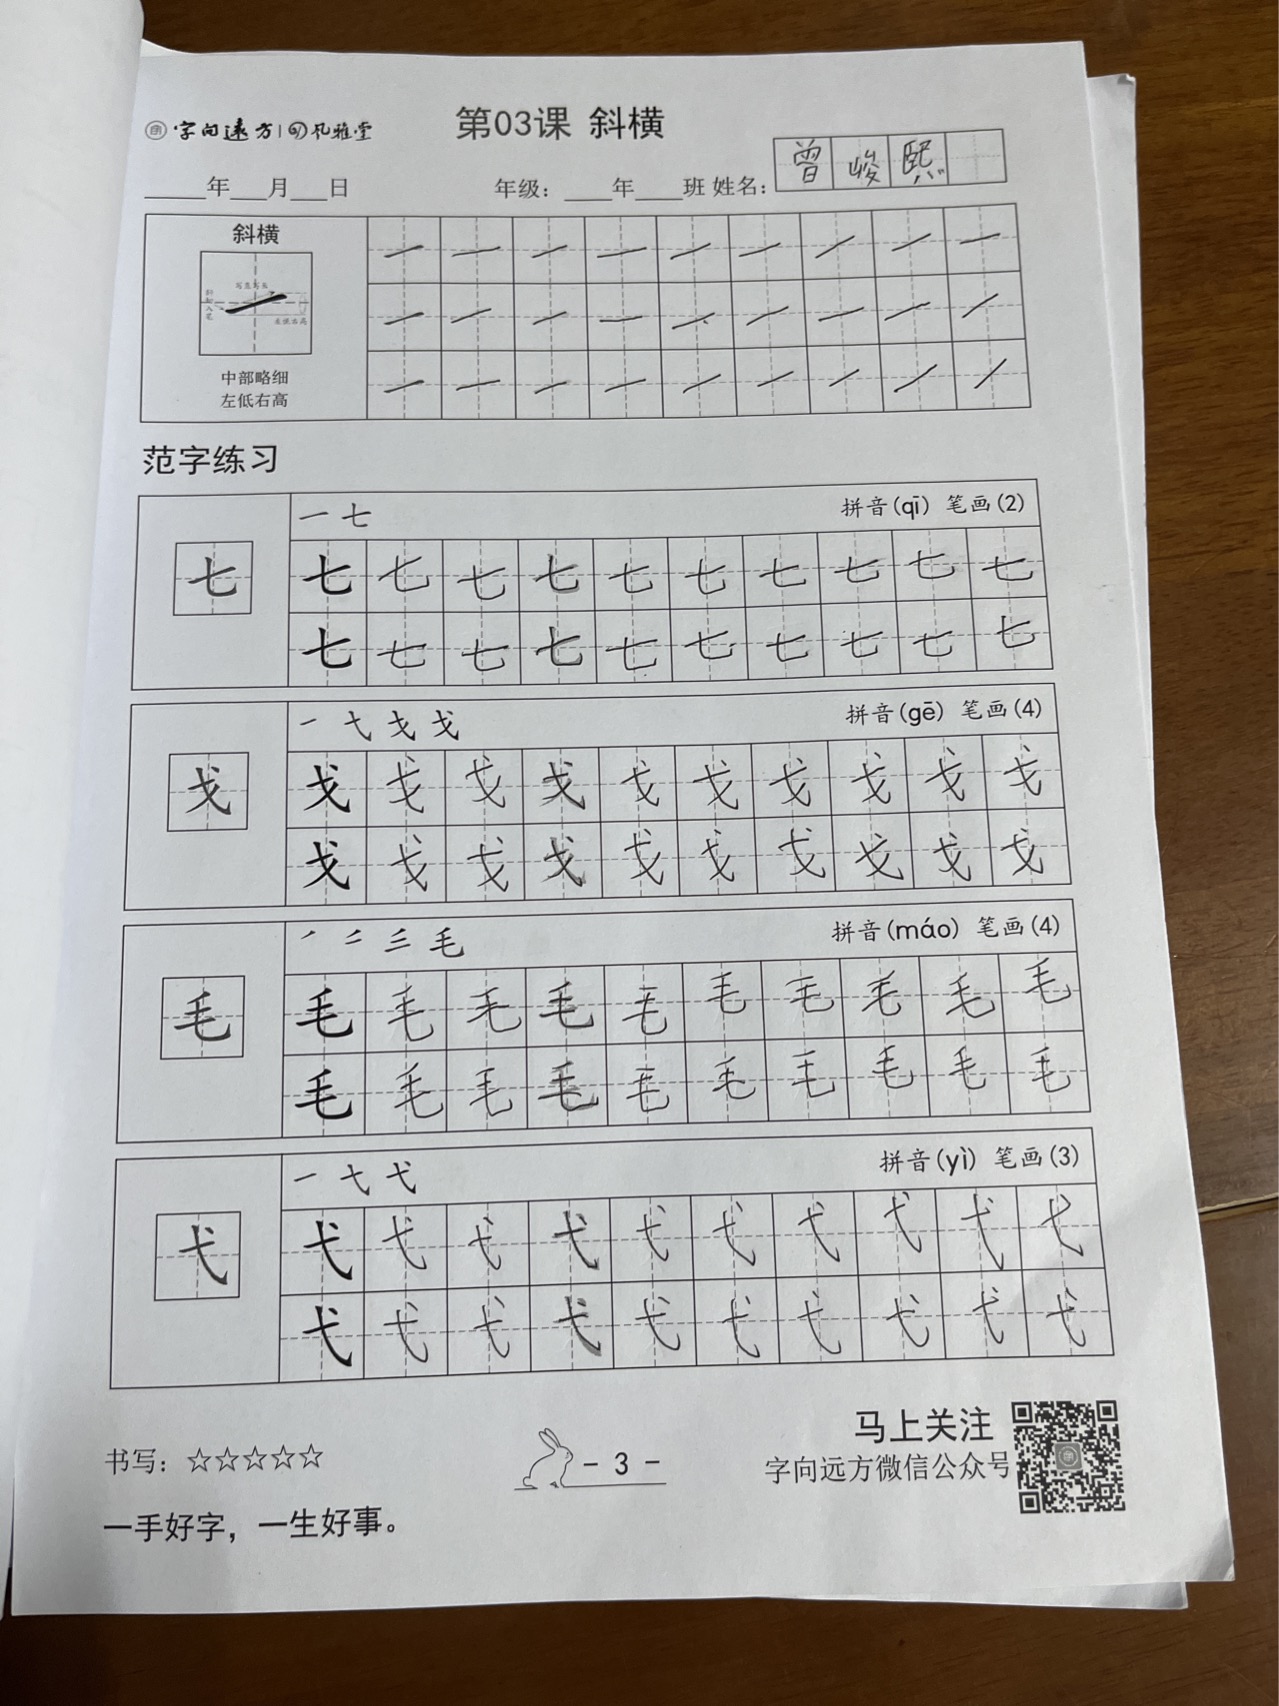 字向远方 风雅堂
第03课 斜横
____年___月___日
年级：____年____班 姓名：曾峻熙
斜横
中部略细
左低右高
一 一 一 一 一 一 一 一 一
一 一 一 一 一 一 一 一 一
一 一 一 一 一 一 一 一 一
范字练习
七
一 七
拼音(qī) 笔画(2)
七 七 七 七 七 七 七 七 七 七
七 七 七 七 七 七 七 七 七 七
戈
一 弋 戈 戈
拼音(gē) 笔画(4)
戈 戈 戈 戈 戈 戈 戈 戈 戈 戈
戈 戈 戈 戈 戈 戈 戈 戈 戈 戈
毛
拼音(máo) 笔画(4)
毛 毛 毛 毛 毛 毛 毛 毛 毛 毛
毛 毛 毛 毛 毛 毛 毛 毛 毛 毛
弋
一 弋 弋
拼音(yì) 笔画(3)
弋 弋 弋 弋 弋 弋 弋 弋 弋 弋
弋 弋 弋 弋 弋 弋 弋 弋 弋 弋
书写：☆☆☆☆☆
- 3 -
马上关注
字向远方微信公众号
一手好字，一生好事。